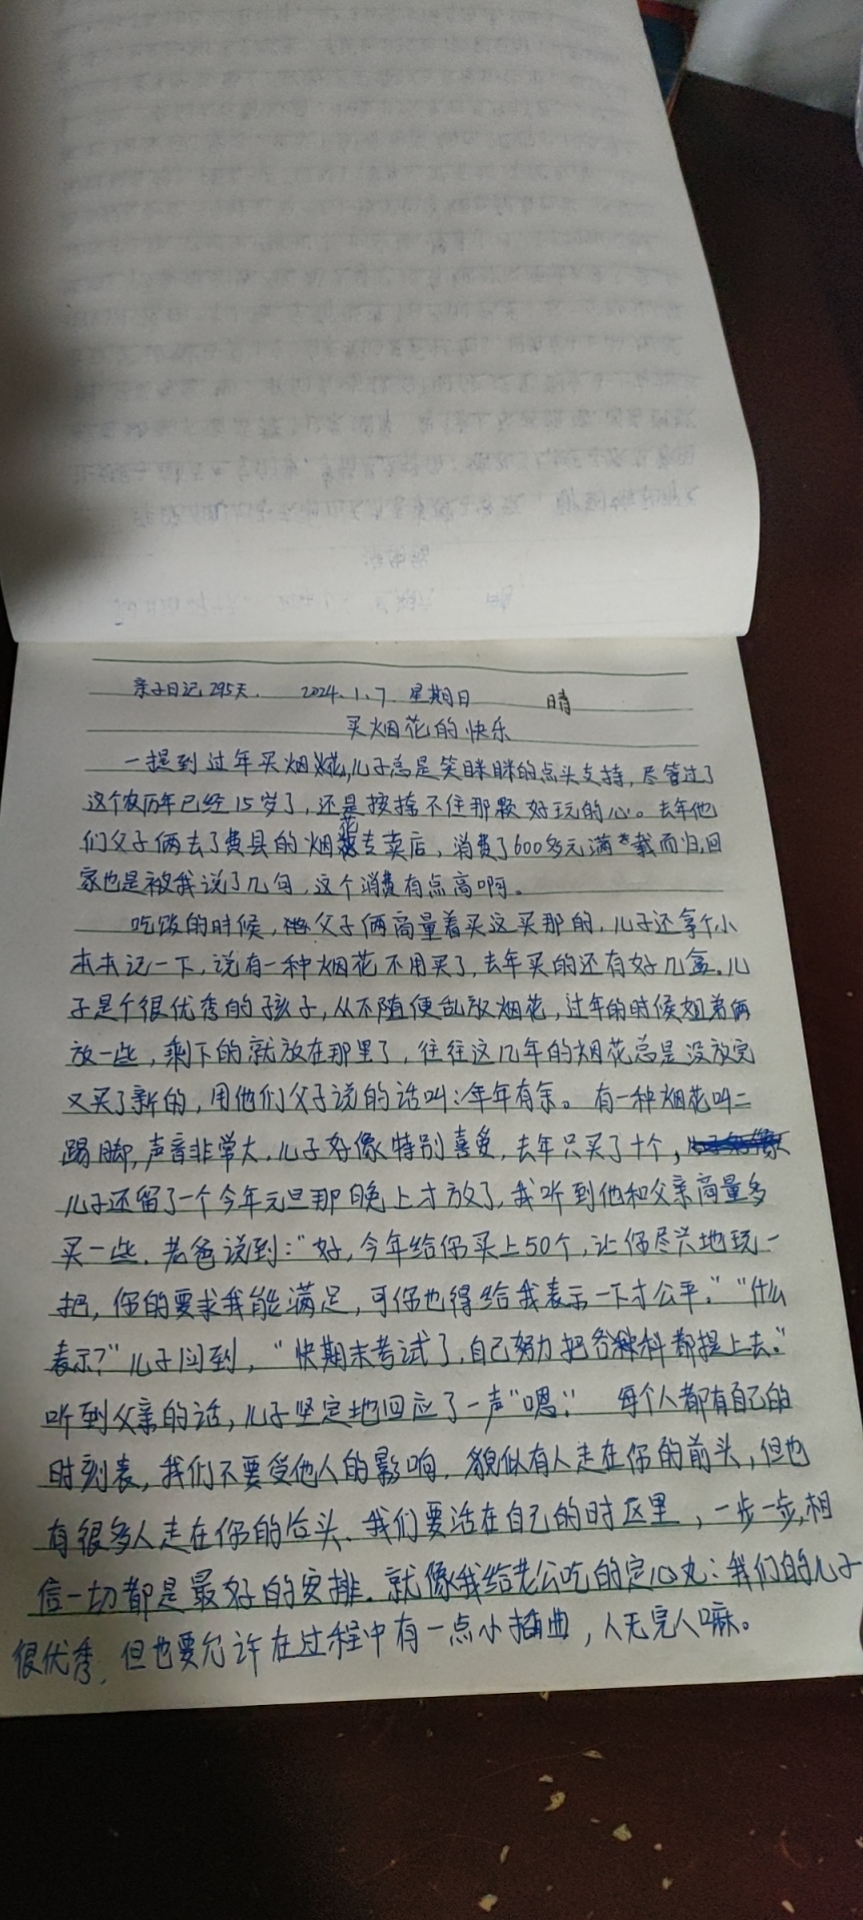 亲子日记295天. 2024.1.7 星期日 晴
买烟花的快乐
一提到过年买烟花,儿子总是笑眯眯的点头支持,尽管过了
这个农历年已经15岁了,还是按捺不住那颗好玩的心。去年他
们父子俩去了费县的烟花专卖店,消费了600多元满载而归,回
家也是被我说了几句,这个消费有点高啊。
吃饭的时候,父子俩商量着买这买那的,儿子还拿个小
本本记一下,说有一种烟花不用买了,去年买的还有好几盒。儿
子是个很优秀的孩子,从不随便乱放烟花,过年的时候姐弟俩
放一些,剩下的就放在那里了,往往这几年的烟花总是没放完
又买了新的,用他们父子说的话叫:年年有余。有一种烟花叫二
踢脚,声音非常大,儿子好像特别喜爱,去年只买了十个,
儿子还留了一个今年元旦那晚上才放了,我听到他和父亲商量多
买一些.老爸说到:“好,今年给你买上50个,让你尽兴地玩一
把,你的要求我能满足,可你也得给我表示一下才公平。”“什么
表示?”儿子问到,“快期末考试了,自己努力把各种科都提上去。”
听到父亲的话,儿子坚定地回应了一声“嗯”。每个人都有自己的
时刻表,我们不要受他人的影响.貌似有人走在你的前头,但也
有很多人走在你的后头、我们要活在自己的时区里,一步一步,相
信一切都是最好的安排.就像我给老公吃的定心丸:我们的儿子
很优秀,但也要允许在过程中有一点小插曲,人无完人嘛。